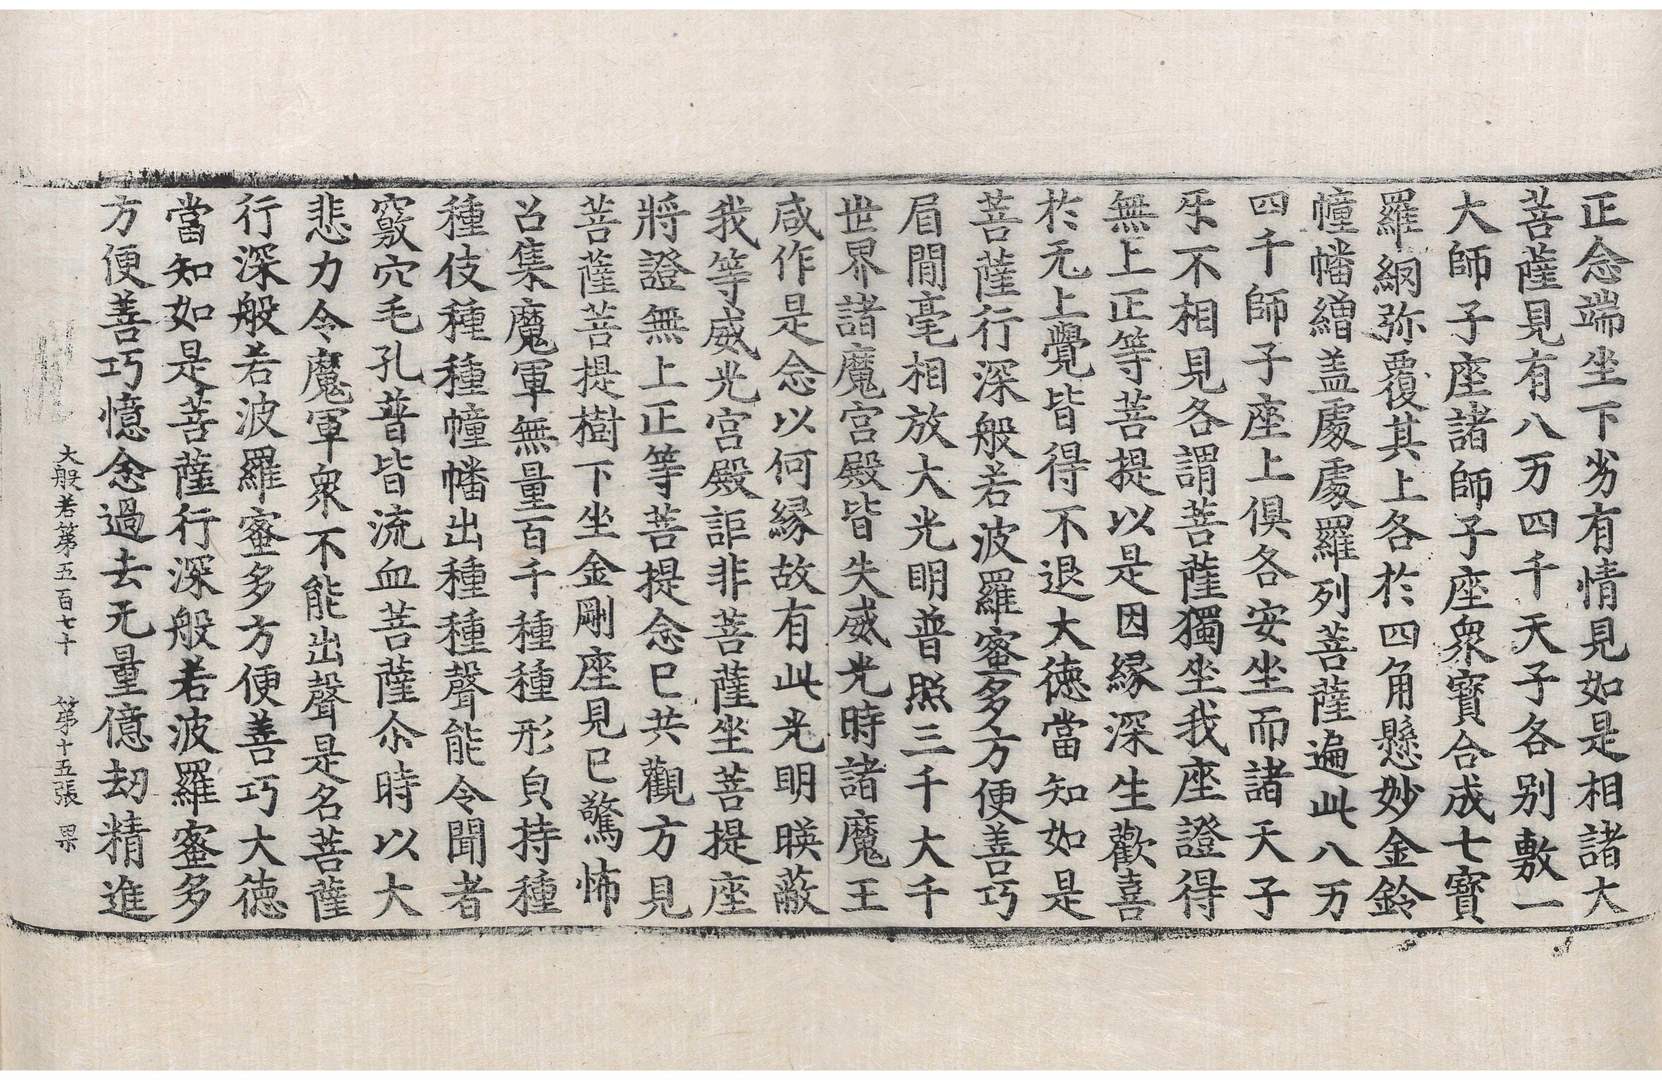 正念端坐下劣有情見如是相諸大
菩薩見有八万四千天子各別敷一
大師子座諸師子座衆寶合成七寶
羅網弥覆其上各於四角懸妙金鈴
幢幡繒盖處處羅列菩薩遍此八万
四千師子座上俱各安坐而諸天子
㸦不相見各謂菩薩獨坐我座證得
無上正等菩提以是因縁深生歡喜
於无上覺皆得不退大德當知如是
菩薩行深般若波羅蜜多方便善巧
眉閒毫相放大光明普照三千大千
世界諸魔宮殿皆失威光時諸魔王
咸作是念以何縁故有此光明暎蔽
我等威光宮殿詎非菩薩坐菩提座
將證無上正等菩提念已共觀方見
菩薩菩提樹下坐金剛座見已驚怖
召集魔軍無量百千種種形皃持種
種伎種種幢幡出種種聲能令聞者
竅穴毛孔普皆流血菩薩尒時以大
悲力令魔軍衆不能出聲是名菩薩
行深般若波羅蜜多方便善巧大德
當知如是菩薩行深般若波羅蜜多
方便善巧憶念過去无量億劫精進
大般若第五百七十　第十五張　昃